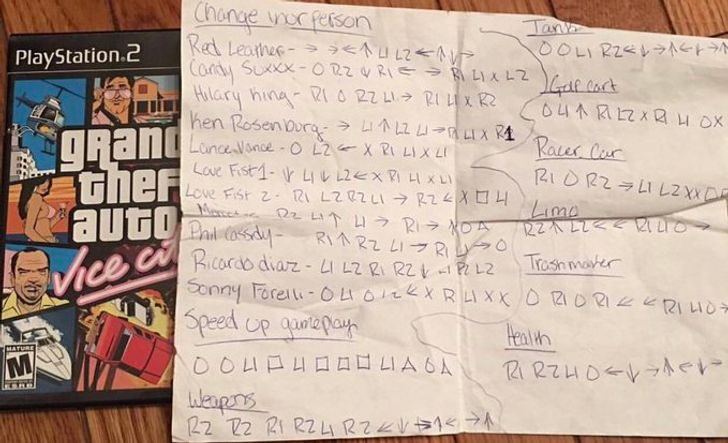 PlayStation 2
grand
thef
auto
Vice cit
MATURE
M
ESRB
Change your person
Red Leather - → → ← ↑ L1 L2 ← ↑ ↓ →
Candy Suxxx - O R2 ↓ R1 ← → R1 L1 X L2
Hilary King - R1 O R2 L1 → R1 L1 X R2
Ken Rosenburg - → L1 ↑ L2 L1 → R1 L1 X R1
Lance Vance - O L2 ← X R1 L1 X L1
Love Fist 1 - ↓ L1 ↓ L2 ← X R1 L1 X L1
Love Fist 2 - R1 L2 R2 L1 → R2 ← X □ L1
R2 L1 ↑ L1 → R1 → O △
Phil Cassidy - R1 ↑ R2 L1 → R1 → O
Ricardo diaz - L1 L2 R1 R2 ↓ L1 R2 L2
Sonny Forelli - O L1 O L2 ← X R1 L1 X X
Speed up gameplay
O O L1 □ L1 □ □ □ L1 △ O △
Weapons
R2 R2 R1 R2 L1 R2 ← ↓ → ↑ ← → ↑
Tank
O O L1 R2 ← ↓ → ↑ ← ↓ → ↑
Golf cart
O L1 ↑ R1 L2 X R1 L1 O X
Racer Car
R1 O R2 → L1 L2 X X □
Limo
R2 ↑ L2 ← ← R1 L1 O →
Trashmaster
O R1 O R1 ← ← R1 L1 O →
Health
R1 R2 L1 O ← ↓ → ↑ ← ↓ →